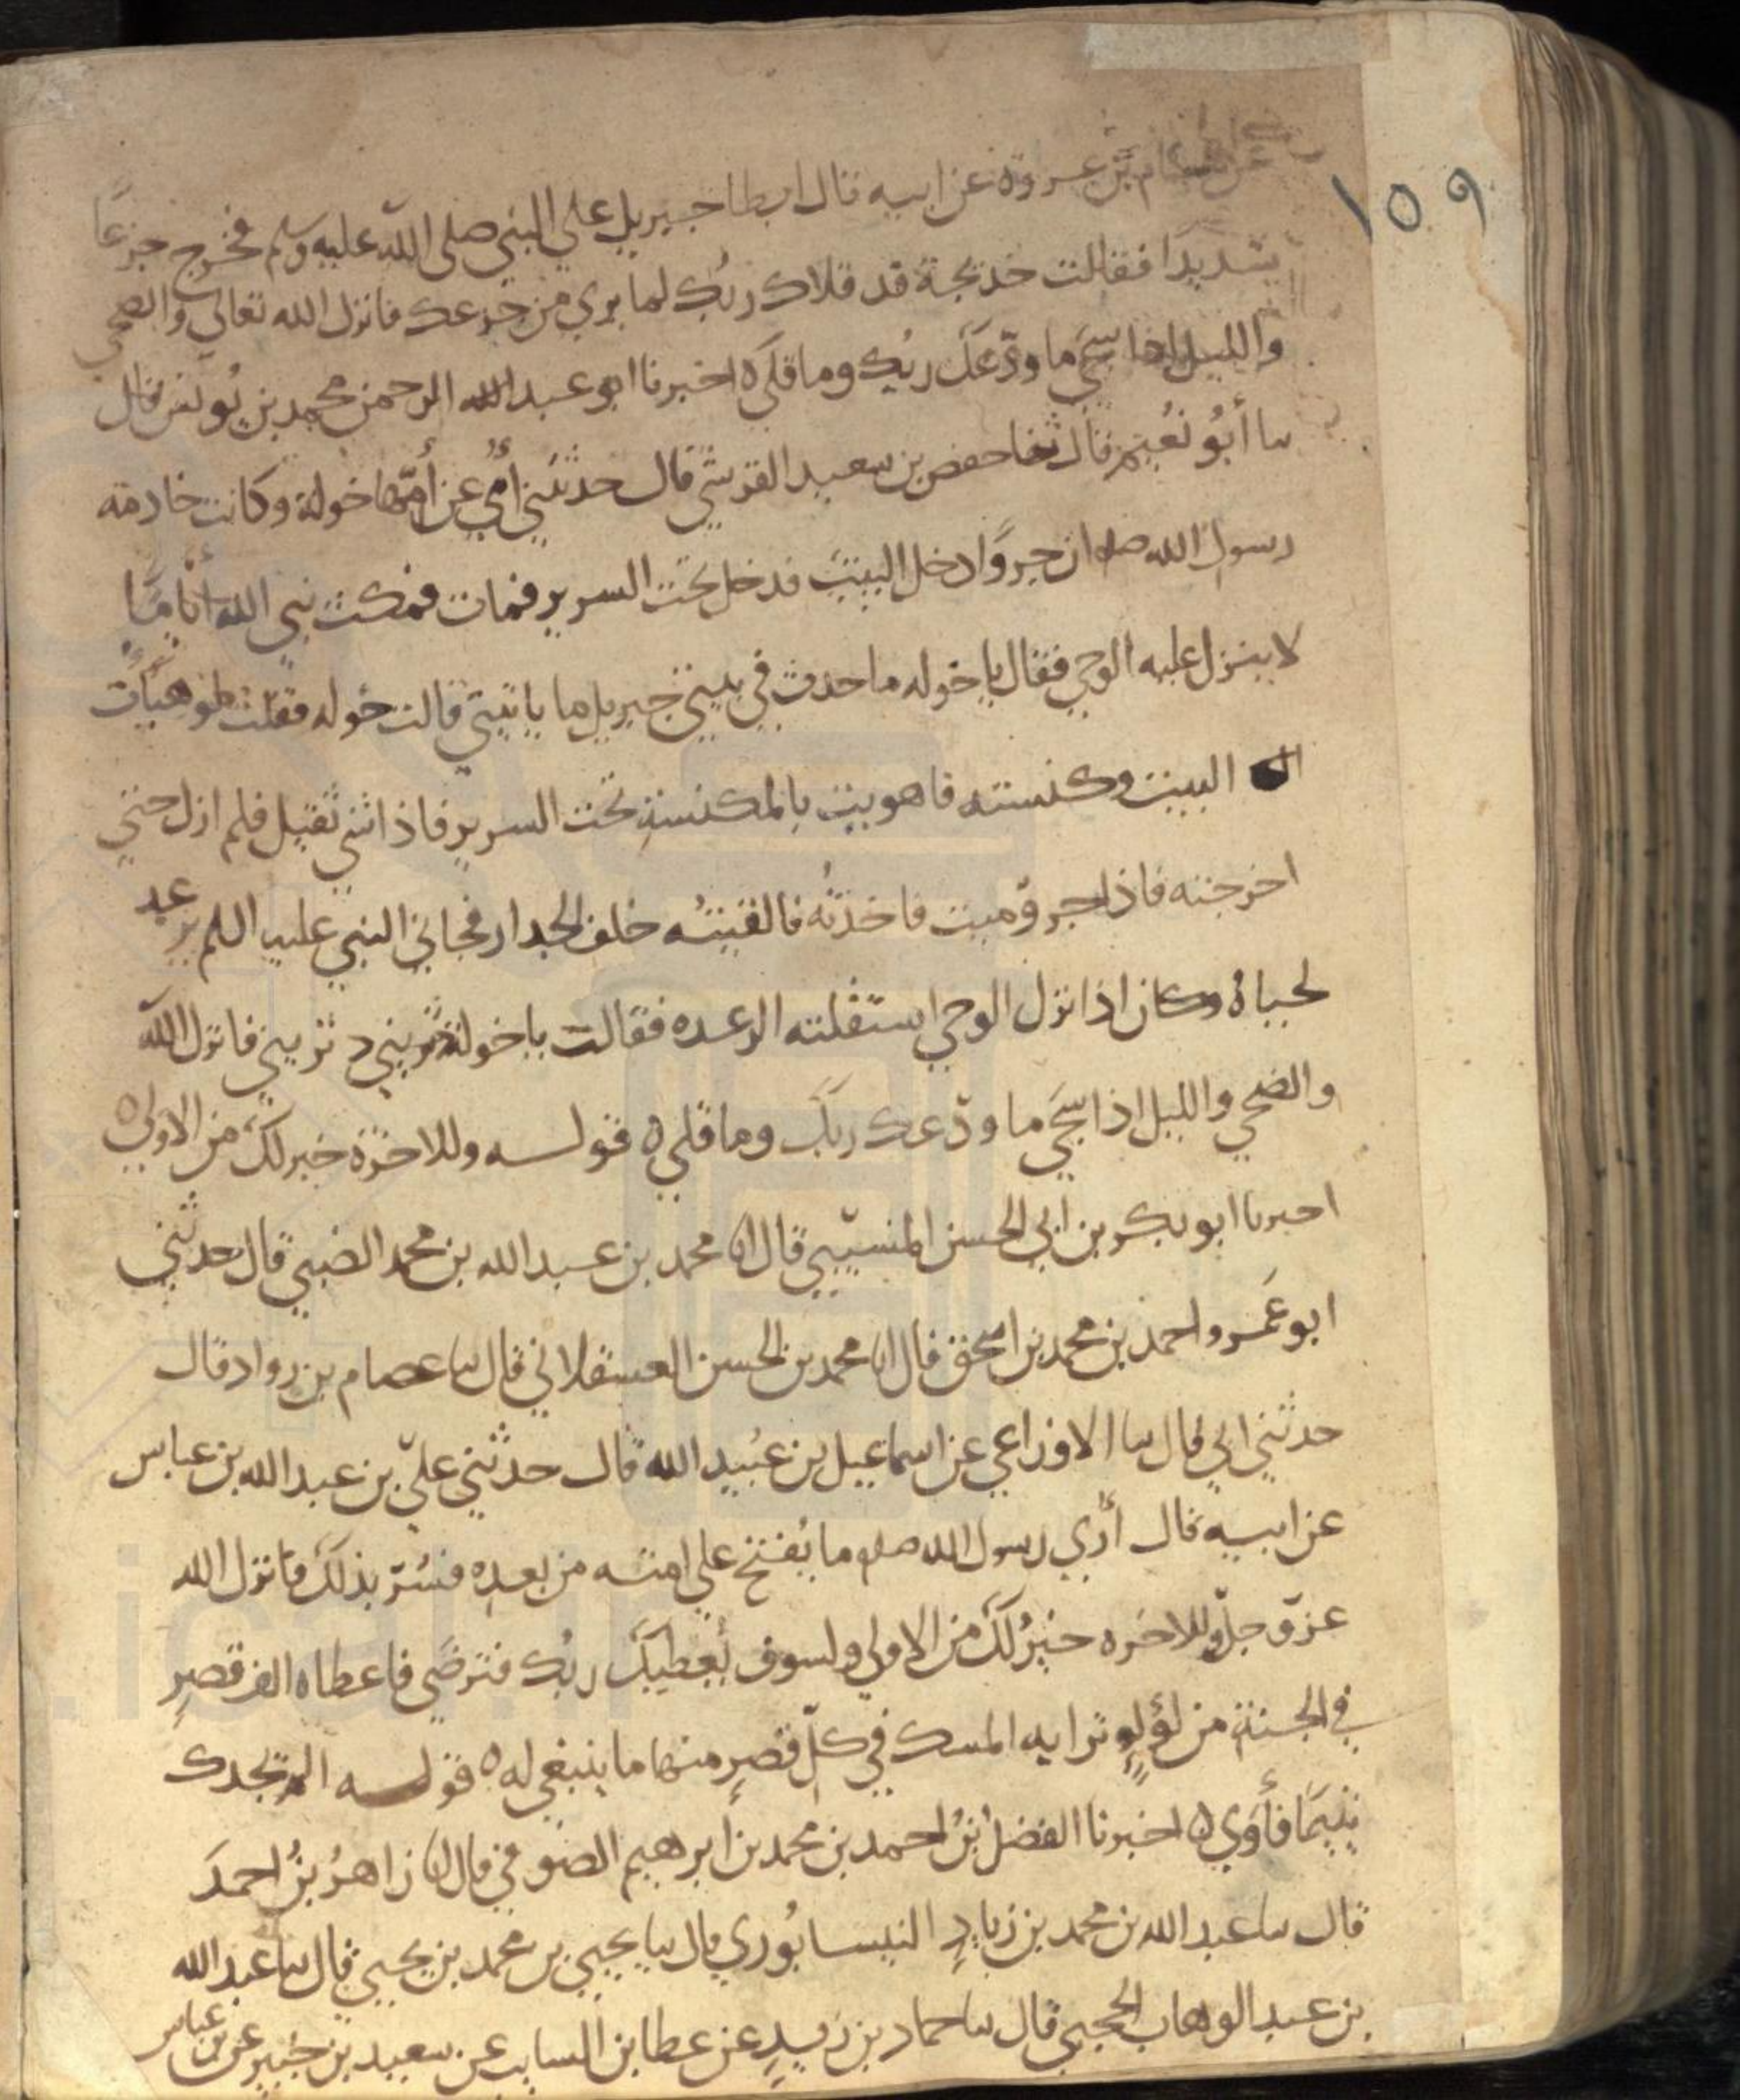 ١٥٩
عن هشام بن عروة عن ابيه قال ابطا جبريل على النبي صلى الله عليه وسلم فخرج جزعًا
شديدًا فقالت خديجة قد قلاك ربك لما يرى من جزعك فانزل الله تعالى والضحى
والليل اذا سجى ما ودّعك ربك وما قلى ه اخبرنا ابو عبد الرحمن محمد بن يونس قال
سا أبو نُعيم قال ثنا حفص بن سعيد القرشي قال حدثتني أُمي عن أُمّها خولة وكانت خادمة
رسول الله صلم ان جروًا دخل البيت فدخل تحت السرير فمات فمكث نبي الله أيامًا
لا ينزل عليه الوحي فقال يا خوله ما حدث في بيتي جبريل ما ياتيني قالت خوله فقلت لو هيأت
البيت وكنسته فاهويت بالمكنسة تحت السرير فاذا شي ثقيل فلم ازل حتى
اخرجته فاذا جروٌ ميت فاخذتُه فالقيتُه خلف الجدار فجا نبي النبي عليه السلم يرعد
لحياه وكان اذا نزل الوحي استقلته الرعده فقالت يا خولة دثريني فانزل الله
والضحى والليل اذا سجى ما ودّعك ربك وما قلى ه قوله وللاخرة خير لك من الاولى ه
اخبرنا ابو بكر بن ابي الحسن المسيبي قال انا محمد بن عبد الله بن محمد الضبي قال حدثني
ابو عَمرو احمد بن محمد بن اسحق قال انا محمد بن الحسن العسقلاني قال سا عصام بن رواد قال
حدثني ابي قال سا الاوزاعي عن اسماعيل بن عُبيد الله قال حدثني عليّ بن عبد الله بن عباس
عن ابيه قال أُري رسول الله صلم ما يُفتح على امته من بعده فسُرّ بذلك فانزل الله
عزّ وجلّ وللاخره خيرٌ لك من الاولى ولسوف يُعطيك ربُك فترضَى فاعطاه الف قصرٍ
في الجنة من لؤلؤٍ ترابه المسك في كلّ قصرٍ منها ما ينبغي له ه قوله الم يجدك
يتيمًا فأوى ه اخبرنا الفضل بنُ احمد بن محمد بن ابرهيم الصوفي قال انا زاهرُ بنُ احمدَ
قال سا عبد الله بن محمد بن زيادٍ النيسابُوري قال سا يحيى بن محمد بن يحيى قال سا عبد الله
بن عبد الوهاب الحجبي قال سا حماد بن زيدٍ عن عطا بن السايب عن سعيد بن جُبير عن بن عباس